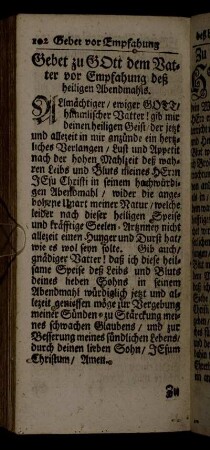 102 Gebet vor Empfahung
Gebet zu GOtt dem Vat-
ter vor Empfahung deß
heiligen Abendmahls.
ALmächtiger / ewiger GOTT /
himmlischer Vatter! gib mir
deinen heiligen Geist / der jetzt
und allezeit in mir anzünde ein hertz-
liches Verlangen / Lust und Appetit
nach der hohen Mahlzeit deß wah-
ren Leibs und Bluts meines HErrn
JEsu Christi in seinem hochwürdi-
gen Abendmahl / wider die ange-
bohrne Unart meiner Natur / welche
leider nach dieser heiligen Speise
und kräfftige Seelen-Artzney nicht
allezeit einen Hunger und Durst hat /
wie es wol seyn solte. Gib auch /
gnädiger Vatter! daß ich diese heil-
same Speise deß Leibs und Bluts
deines lieben Sohns in seinem
Abendmahl würdiglich jetzt und al-
lezeit geniessen möge zur Vergebung
meiner Sünden / zu Stärckung mei-
nes schwachen Glaubens / und zur
Besserung meines sündlichen Lebens /
durch deinen lieben Sohn / JEsum
Christum / Amen.
Zu